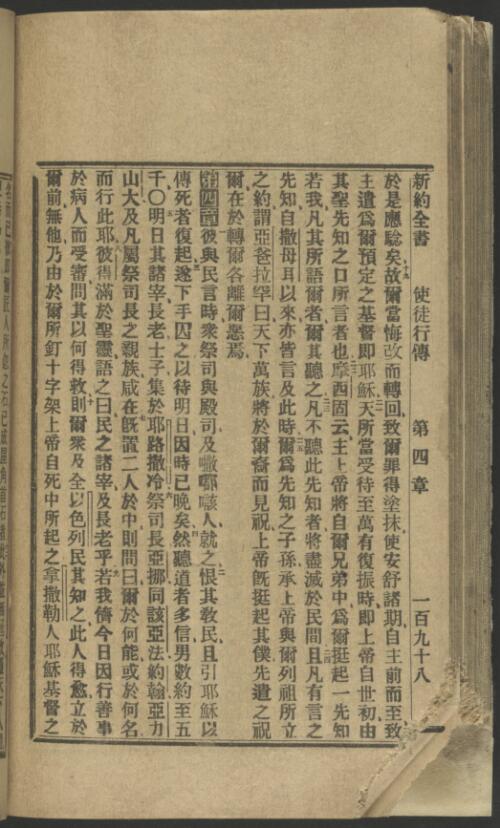 新約全書 使徒行傳 第四章 一百九十八
於是應騐矣故爾當悔改而轉回致爾罪得塗抹使安舒諸期自主前而至致
主遣爲爾預定之基督即耶穌天所當受待至萬有復振時即上帝自世初由
其聖先知之口所言者也摩西固云主上帝將自爾兄弟中爲爾挺起一先知
若我凡其所語爾者爾其聽之凡不聽此先知者將盡滅於民間且凡有言之
先知自撒母耳以來亦皆言及此時爾爲先知之子孫承上帝與爾列祖所立
之約謂亞爸拉罕曰天下萬族將於爾裔而見祝上帝旣挺起其僕先遣之祝
爾在於轉爾各離爾惡焉
第四章彼與民言時衆祭司與殿司及𠿕㖿嘅人就之恨其敎民且引耶穌以
傳死者復起遂下手囚之以待明日因時已晚矣然聽道者多信男數約至五
千〇明日其諸宰長老士子集於耶路撒冷祭司長亞挪同該亞法約翰亞力
山大及凡屬祭司長之親族咸在旣置二人於中則問曰爾於何能或於何名
而行此耶彼得滿於聖靈語之曰民之諸宰及長老乎若我儕今日因行善事
於病人而受審問其以何得救則爾衆及全以色列民其知之此人得愈立於
爾前無他乃由於爾所釘十字架上帝自死中所起之拿撒勒人耶穌基督之